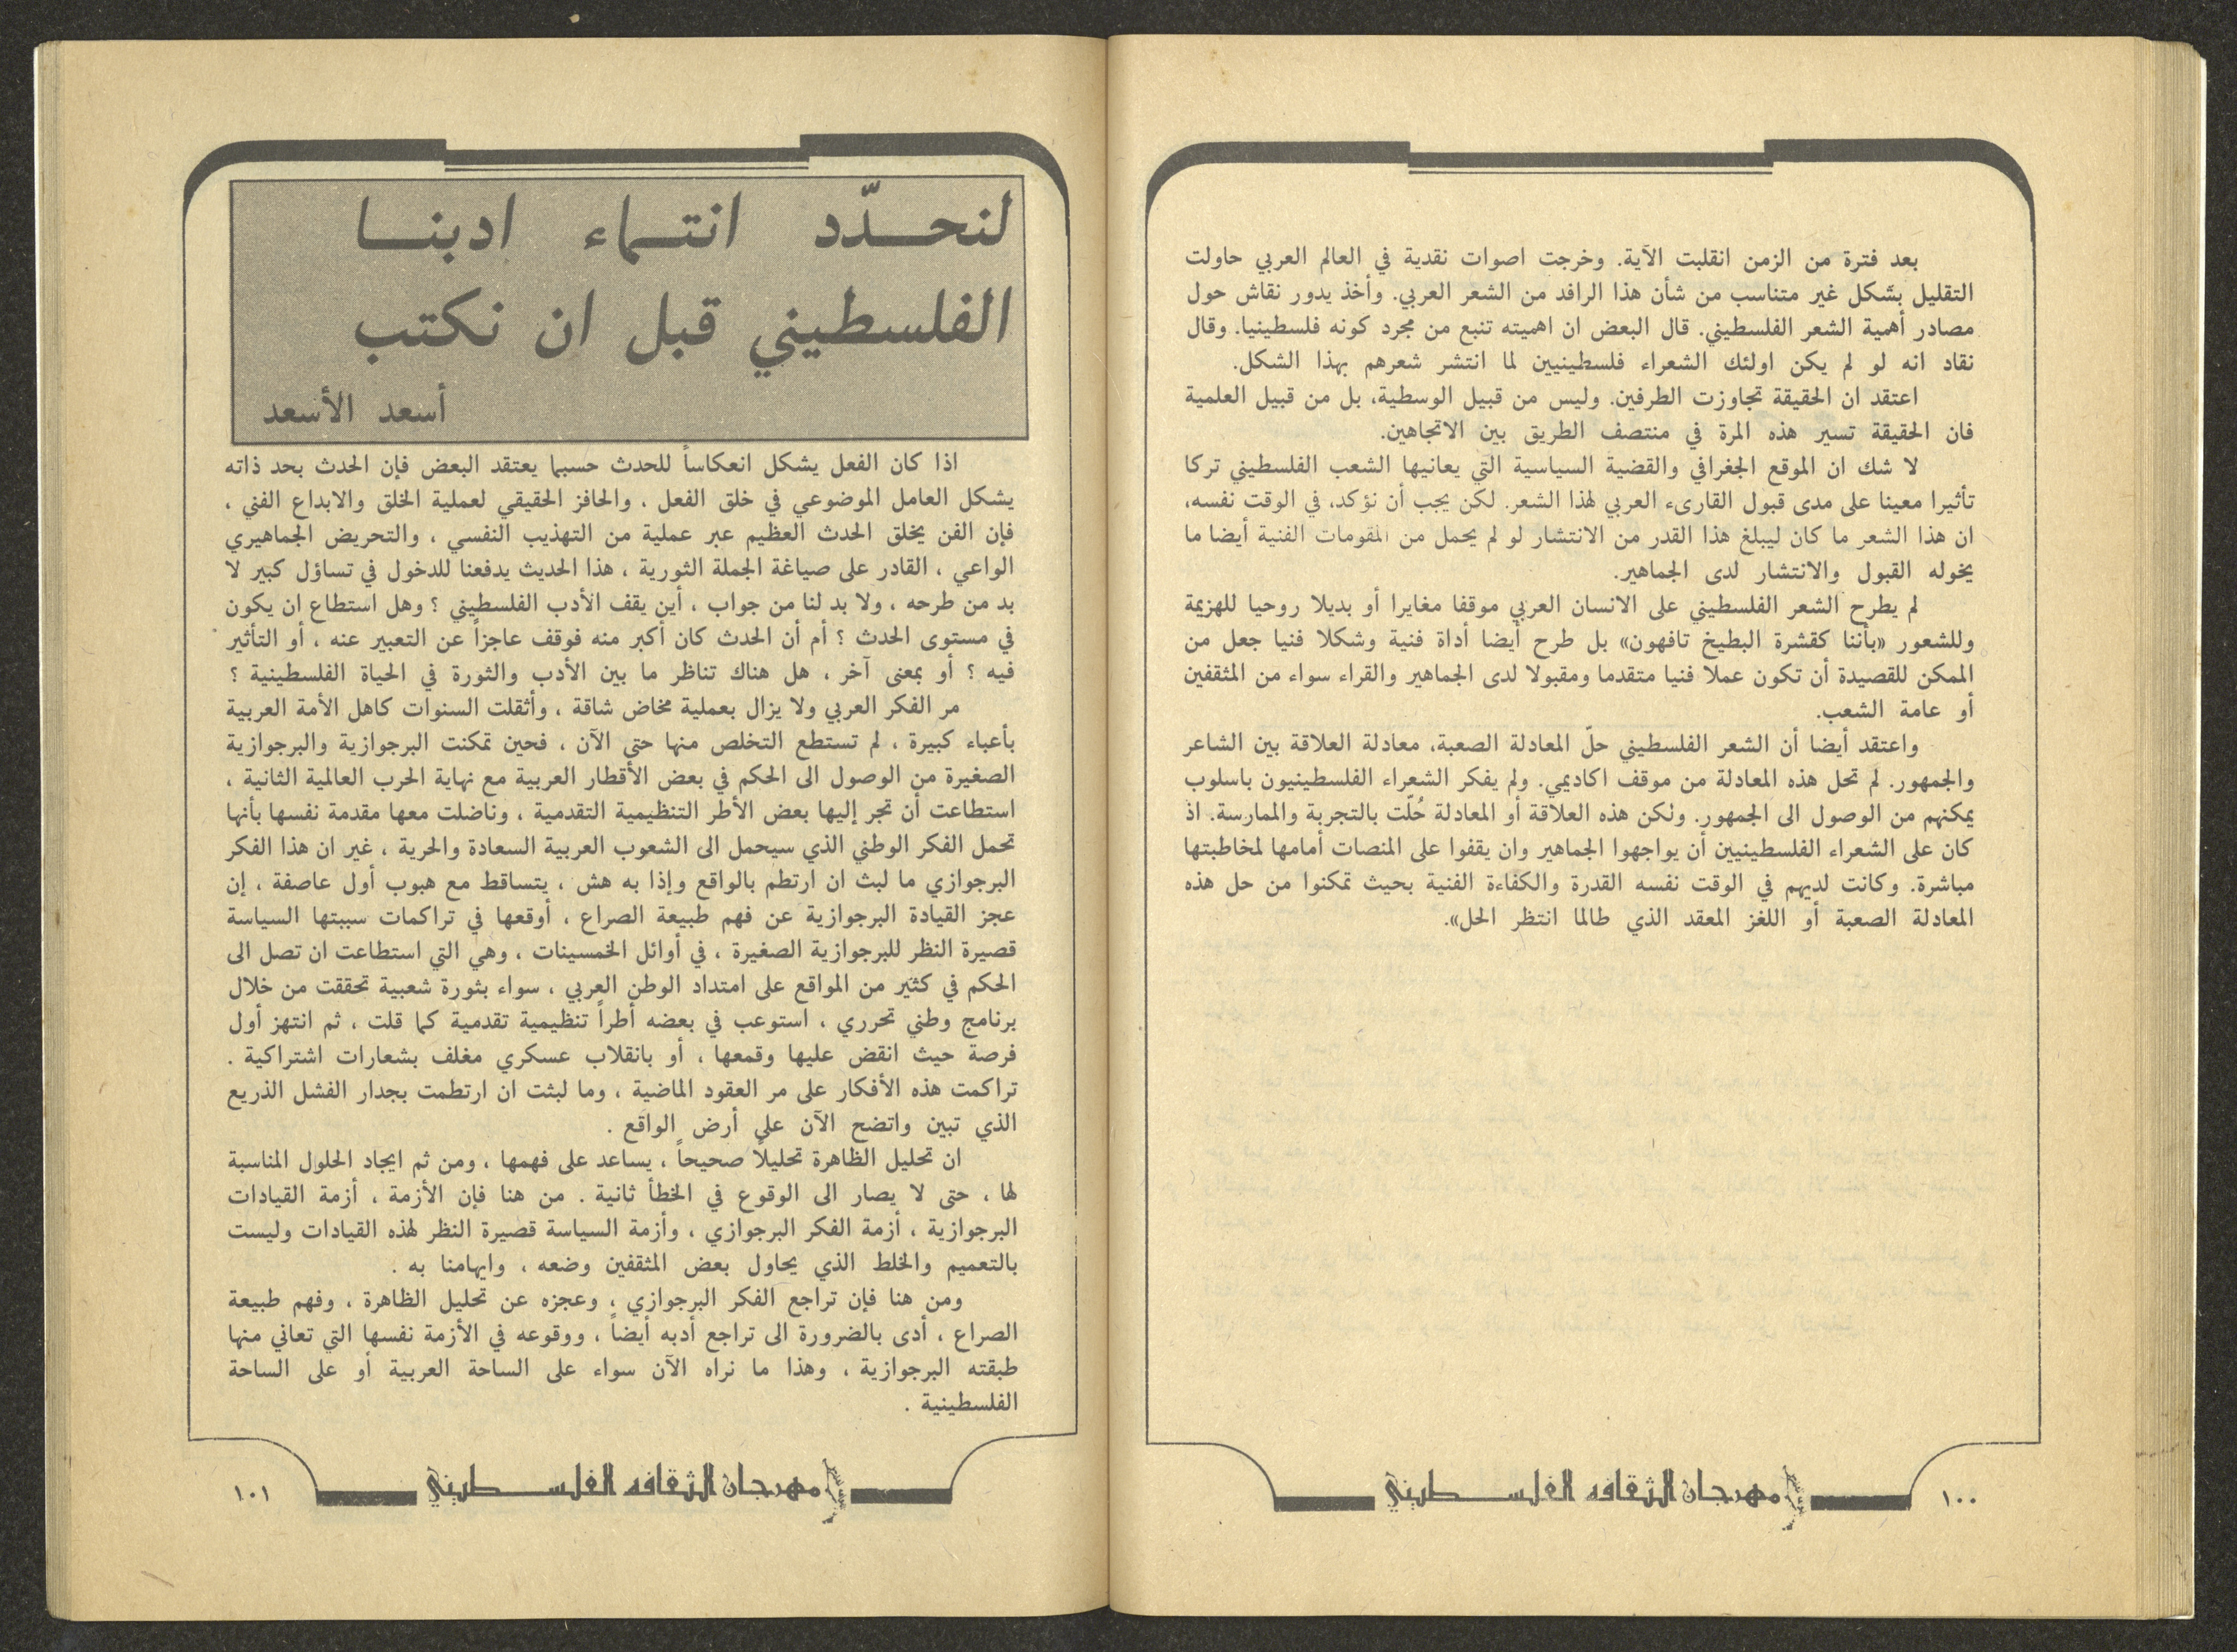 بعد فترة من الزمن انقلبت الآية. وخرجت اصوات نقدية في العالم العربي حاولت
التقليل بشكل غير متناسب من شأن هذا الرافد من الشعر العربي. وأخذ يدور نقاش حول
مصادر أهمية الشعر الفلسطيني. قال البعض ان اهميته تنبع من مجرد كونه فلسطينيا. وقال
نقاد انه لو لم يكن اولئك الشعراء فلسطينيين لما انتشر شعرهم بهذا الشكل.
اعتقد ان الحقيقة تجاوزت الطرفين. وليس من قبيل الوسطية، بل من قبيل العلمية
فان الحقيقة تسير هذه المرة في منتصف الطريق بين الاتجاهين.
لا شك ان الموقع الجغرافي والقضية السياسية التي يعانيها الشعب الفلسطيني تركا
تأثيرا معينا على مدى قبول القارىء العربي لهذا الشعر. لكن يجب أن نؤكد، في الوقت نفسه،
ان هذا الشعر ما كان ليبلغ هذا القدر من الانتشار لو لم يحمل من المقومات الفنية أيضا ما
يخوله القبول والانتشار لدى الجماهير.
لم يطرح الشعر الفلسطيني على الانسان العربي موقفا مغايرا أو بديلا روحيا للهزيمة
وللشعور «بأننا كقشرة البطيخ تافهون» بل طرح أيضا أداة فنية وشكلا فنيا جعل من
الممكن للقصيدة أن تكون عملا فنيا متقدما ومقبولا لدى الجماهير والقراء سواء من المثقفين
أو عامة الشعب.
واعتقد أيضا أن الشعر الفلسطيني حلّ المعادلة الصعبة، معادلة العلاقة بين الشاعر
والجمهور. لم تحل هذه المعادلة من موقف اكاديمي. ولم يفكر الشعراء الفلسطينيون باسلوب
يمكنهم من الوصول الى الجمهور. ولكن هذه العلاقة أو المعادلة حُلّت بالتجربة والممارسة. اذ
كان على الشعراء الفلسطينيين أن يواجهوا الجماهير وان يقفوا على المنصات أمامها لمخاطبتها
مباشرة. وكانت لديهم في الوقت نفسه القدرة والكفاءة الفنية بحيث تمكنوا من حل هذه
المعادلة الصعبة أو اللغز المعقد الذي طالما انتظر الحل».
مهرجان الثقافه الفلسطيني
١٠٠
لنحدّد انتماء ادبنا
الفلسطيني قبل ان نكتب
أسعد الأسعد
اذا كان الفعل يشكل انعكاساً للحدث حسبما يعتقد البعض فإن الحدث بحد ذاته
يشكل العامل الموضوعي في خلق الفعل ، والحافز الحقيقي لعملية الخلق والابداع الفني ،
فإن الفن يخلق الحدث العظيم عبر عملية من التهذيب النفسي ، والتحريض الجماهيري
الواعي ، القادر على صياغة الجملة الثورية ، هذا الحديث يدفعنا للدخول في تساؤل كبير لا
بد من طرحه ، ولا بد لنا من جواب ، أين يقف الأدب الفلسطيني ؟ وهل استطاع ان يكون
في مستوى الحدث ؟ أم أن الحدث كان أكبر منه فوقف عاجزاً عن التعبير عنه ، أو التأثير
فيه ؟ أو بمعنى آخر ، هل هناك تناظر ما بين الأدب والثورة في الحياة الفلسطينية ؟
مر الفكر العربي ولا يزال بعملية مخاض شاقة ، وأثقلت السنوات كاهل الأمة العربية
بأعباء كبيرة ، لم تستطع التخلص منها حتى الآن ، فحين تمكنت البرجوازية والبرجوازية
الصغيرة من الوصول الى الحكم في بعض الأقطار العربية مع نهاية الحرب العالمية الثانية ،
استطاعت أن تجر إليها بعض الأطر التنظيمية التقدمية ، وناضلت معها مقدمة نفسها بأنها
تحمل الفكر الوطني الذي سيحمل الى الشعوب العربية السعادة والحرية ، غير ان هذا الفكر
البرجوازي ما لبث ان ارتطم بالواقع وإذا به هش ، يتساقط مع هبوب أول عاصفة ، إن
عجز القيادة البرجوازية عن فهم طبيعة الصراع ، أوقعها في تراكمات سببتها السياسة
قصيرة النظر للبرجوازية الصغيرة ، في أوائل الخمسينات ، وهي التي استطاعت ان تصل الى
الحكم في كثير من المواقع على امتداد الوطن العربي ، سواء بثورة شعبية تحققت من خلال
برنامج وطني تحرري ، استوعب في بعضه أطراً تنظيمية تقدمية كما قلت ، ثم انتهز أول
فرصة حيث انقض عليها وقمعها ، أو بانقلاب عسكري مغلف بشعارات اشتراكية .
تراكمت هذه الأفكار على مر العقود الماضية ، وما لبثت ان ارتطمت بجدار الفشل الذريع
الذي تبين واتضح الآن على أرض الواقع .
ان تحليل الظاهرة تحليلاً صحيحاً ، يساعد على فهمها ، ومن ثم ايجاد الحلول المناسبة
لها ، حتى لا يصار الى الوقوع في الخطأ ثانية . من هنا فإن الأزمة ، أزمة القيادات
البرجوازية ، أزمة الفكر البرجوازي ، وأزمة السياسة قصيرة النظر لهذه القيادات وليست
بالتعميم والخلط الذي يحاول بعض المثقفين وضعه ، وايهامنا به .
ومن هنا فإن تراجع الفكر البرجوازي ، وعجزه عن تحليل الظاهرة ، وفهم طبيعة
الصراع ، أدى بالضرورة الى تراجع أدبه أيضاً ، ووقوعه في الأزمة نفسها التي تعاني منها
طبقته البرجوازية ، وهذا ما نراه الآن سواء على الساحة العربية أو على الساحة
الفلسطينية .
مهرجان الثقافه الفلسطيني
١٠١